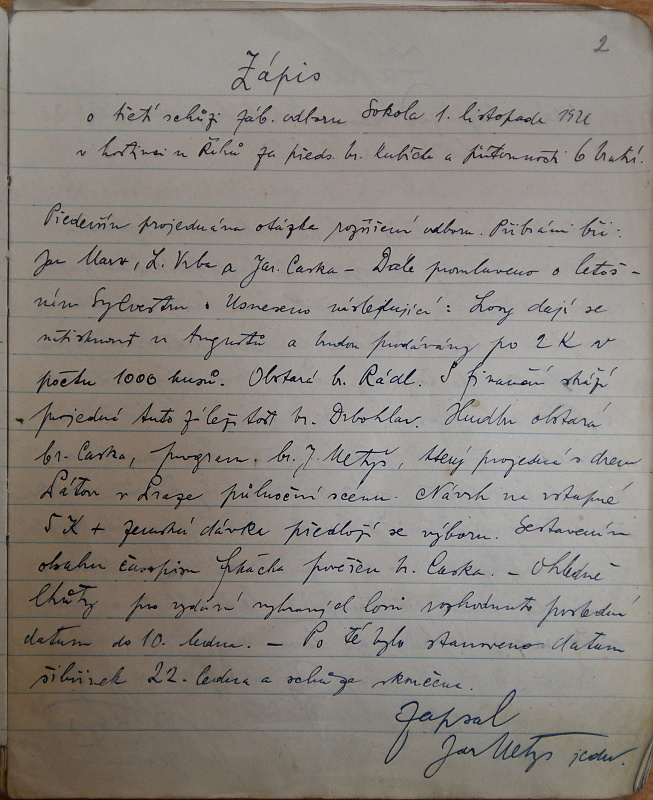 2
Zápis
o třetí schůzi záb. odboru Sokola 1. listopadu 1921
v hostinci u Řeků za předs. br. Kubíčka a přítomnosti 6 bratří.
Především projednána otázka rozšíření odboru. Přibráni bři:
Jar Marx, L. Vrba a Jar. Caska – Dále promluveno o letoš-
ním Sylvestru. Usneseno následující: Losy dají se
natisknout u Augustů a budou prodávány po 2 K v
počtu 1000 kusů. Obstará b. Rádl. S finanční stráží
projedná tuto záležitost br. Drbohlav. Hudbu obstará
br. Caska, program br. J. Metyš, který projedná s drem
v Praze půlnoční scénu. Návrh na vstupné
5 K + zemská dávka předloží se výboru. Sestavením
obsahu časopisu pověřen br. Caska. – Ohledně
lhůty pro vydání vybraných losů rozhodnuto poslední
datum do 10. ledna. – Po té bylo stanoveno datum
šibřinek 22. ledna a schůze skončena.
Zapsal
Jar Metyš jedn.